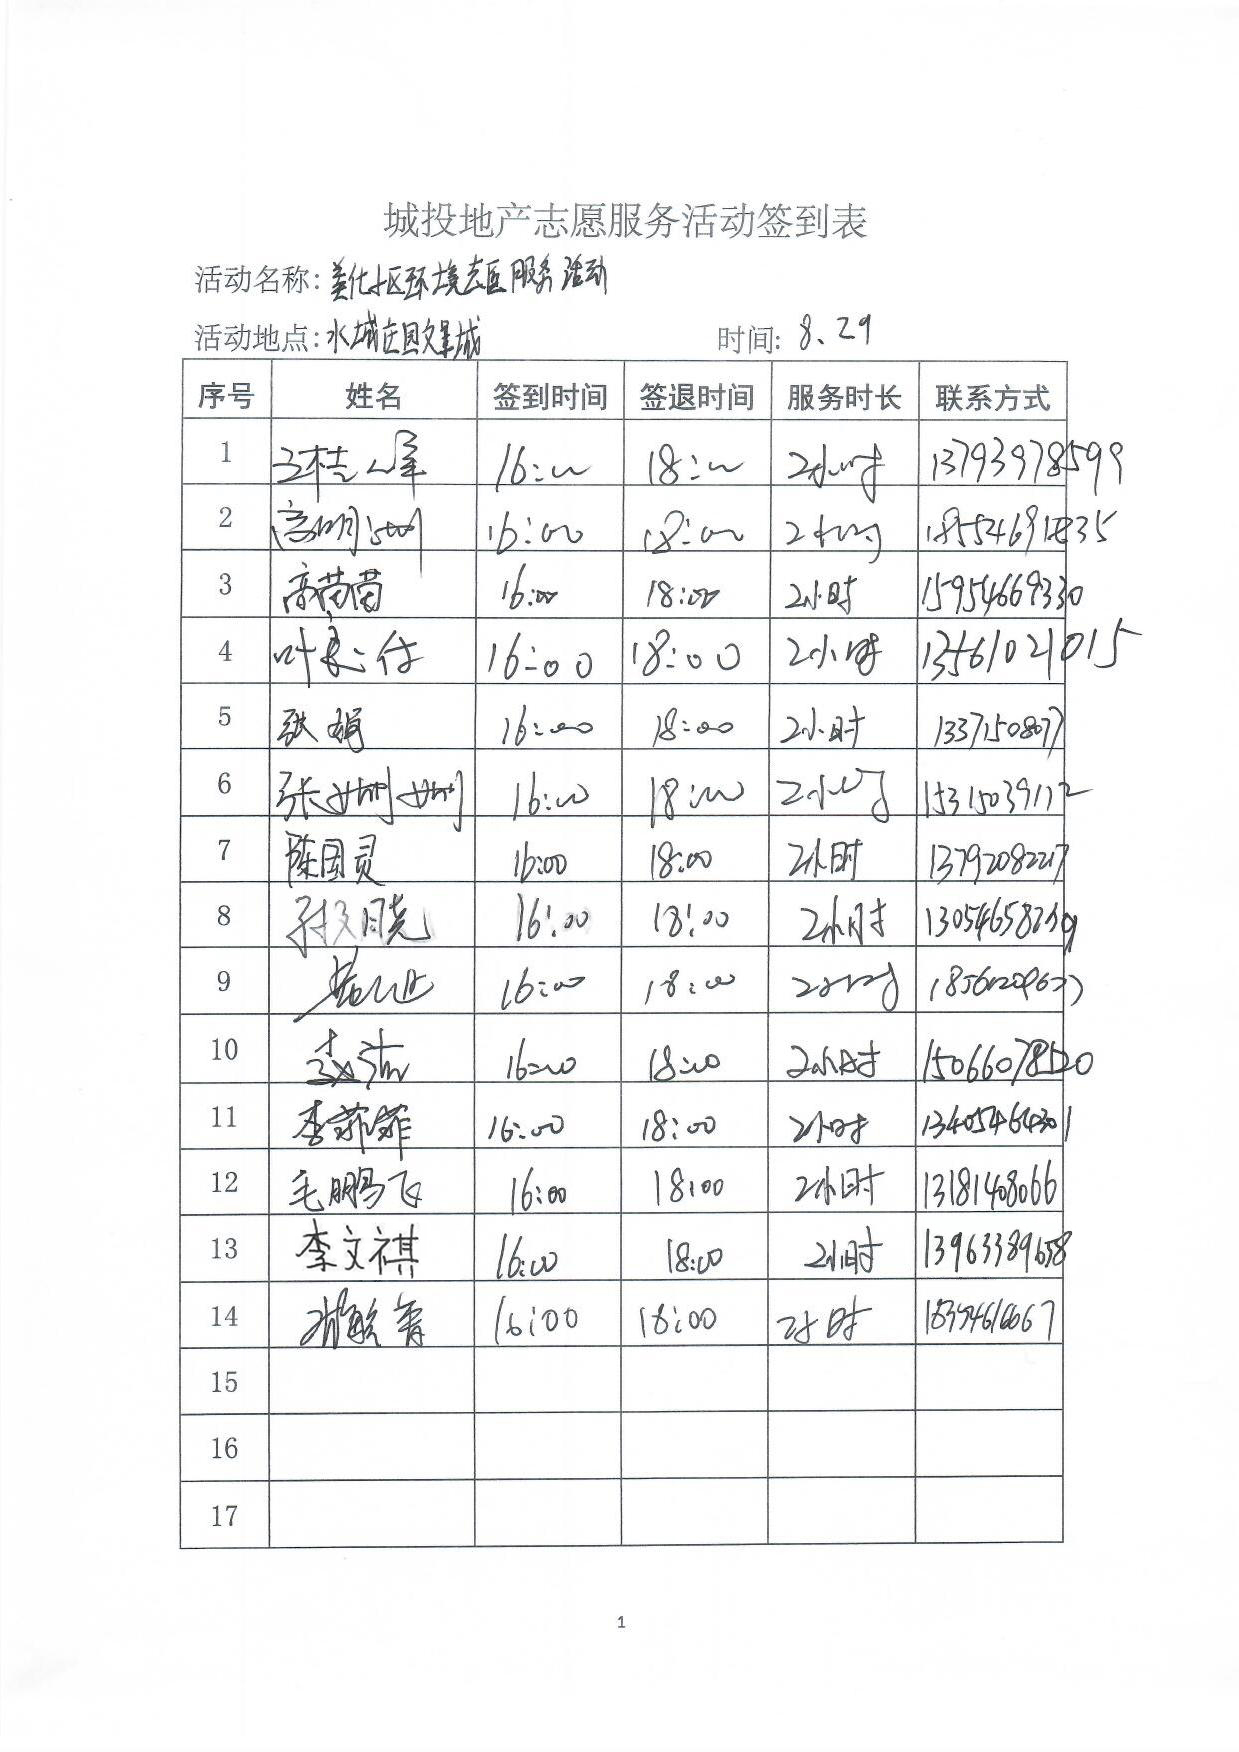 城投地产志愿服务活动签到表
活动名称: 美化社区环境志愿服务活动
活动地点: 水城庄园文昌城 时间: 8.29
序号 姓名 签到时间 签退时间 服务时长 联系方式
1 王桂军 16:00 18:00 2小时 13793978599
2 16:00 18:00 2小时
3 高苗苗 16:00 18:00 2小时 15954669330
4 16:00 18:00 2小时 13561021015
5 张娟 16:00 18:00 2小时 13371508077
6 张姗姗 16:00 18:00 2小时 15315039112
7 陈国灵 16:00 18:00 2小时 13792082217
8 16:00 18:00 2小时
9 16:00 18:00 2小时
10 16:00 18:00 2小时 15066078520
11 李菲菲 16:00 18:00 2小时 13405464301
12 毛鹏飞 16:00 18:00 2小时 13181408066
13 李文祺 16:00 18:00 2小时 13963389658
14 16:00 18:00 2小时
15
16
17
1